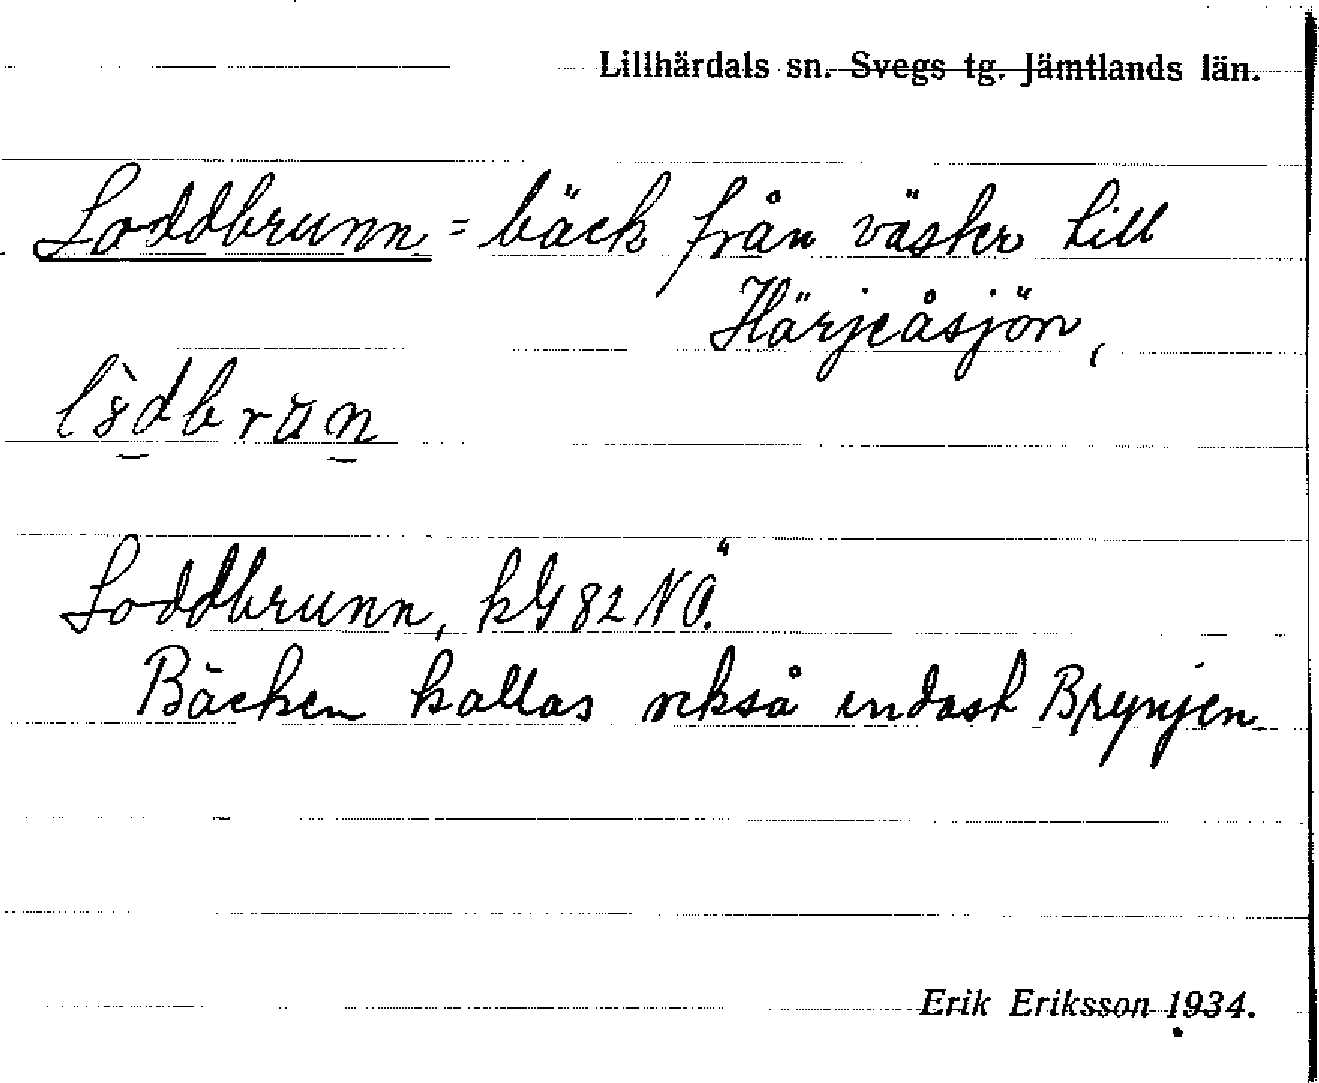 Lillhärdals sn. Svegs tg. Jämtlands län.
Loddbrunn = bäck från väster till
Härjeåsjön,
Loddbrunn, kG 82 NÖ.
Bäcken kallas också endast Brynjen
Erik Eriksson 1934.